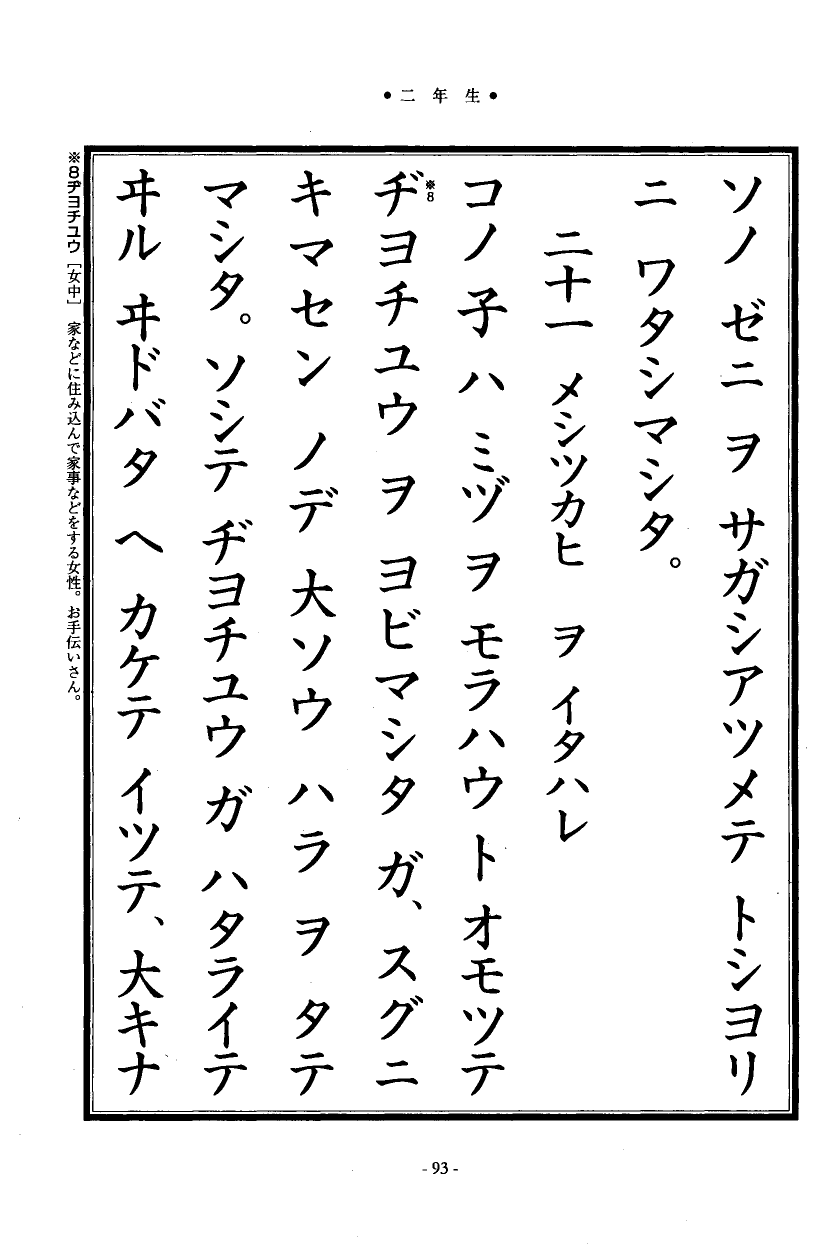 ●二年生●
ソノ ゼニ ヲ サガシアツメテ トシヨリ
ニ ワタシマシタ。
二十一 メシツカヒ ヲ イタハレ
コノ 子 ハ ミヅ ヲ モラハウ ト オモツテ
ヂヨチユウ※8 ヲ ヨビマシタ ガ、スグニ
キマセン ノデ 大ソウ ハラ ヲ タテ
マシタ。ソシテ ヂヨチユウ ガ ハタライテ
ヰル ヰドバタ ヘ カケテ イツテ、大キナ
※8ヂヨチユウ［女中］ 家などに住み込んで家事などをする女性。お手伝いさん。
- 93 -